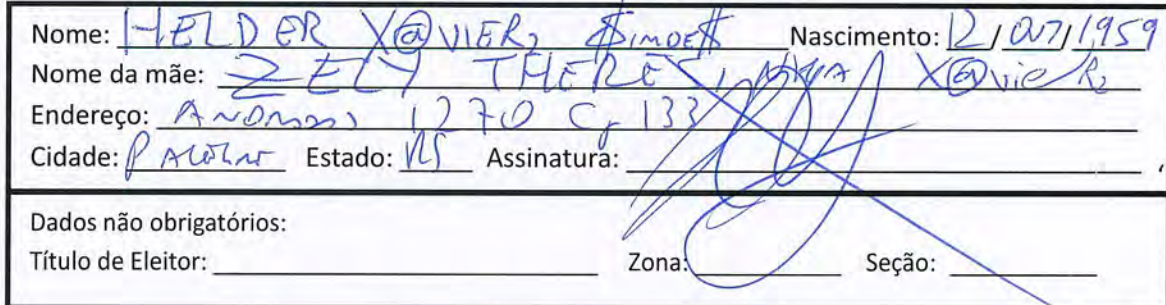 Nome: HELDER X@VIER, $IMOE$ Nascimento: 12/07/1959
Nome da mãe: ZELY X@vieR
Endereço: 1270 Cj 133
Cidade: P Estado: RS Assinatura:
Dados não obrigatórios:
Título de Eleitor: Zona: Seção: